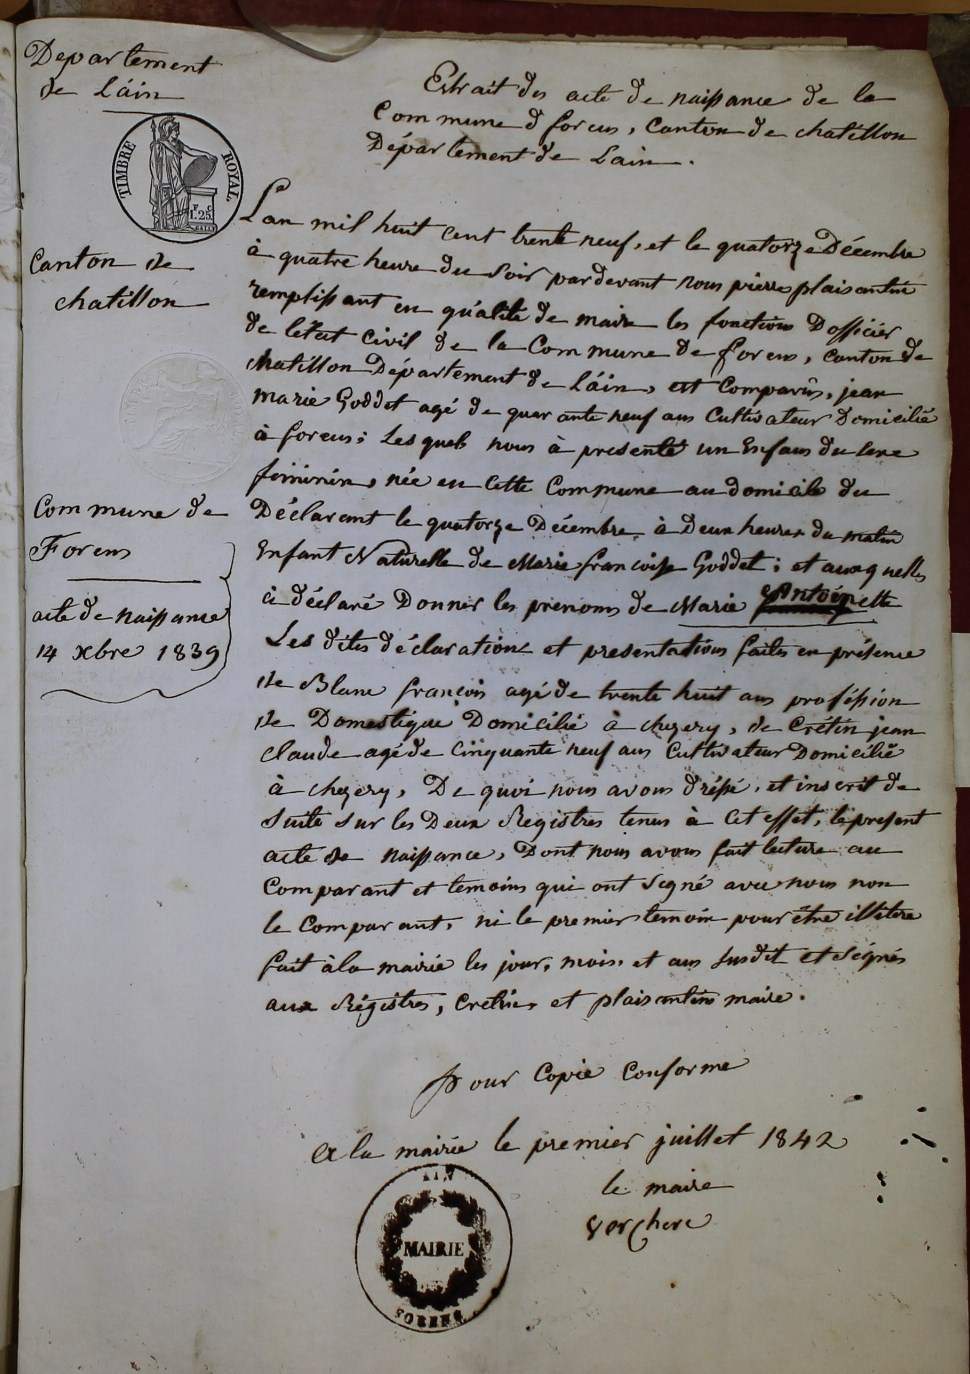 Departement
de Láin
TIMBRE ROYAL
1.25
Canton de
chatillon
Commune de
Forens
acte de naissance
14 xbre 1839
Extrait des acte de naissance de la
Commune d forens, canton de chatillon
Département de Lain.
Lan mil huit cent trente neuf, et le quatorze Décembre
à quatre heure du soir pardevant nous pierre plaisantin
remplissant en qualité de maire les fonctions Dofficier
de létat civil de la Commune de forens, canton de
chatillon Département de Láin, est Comparûs, jean
marie Goddet agé de quarante neuf ans Cultivateur Domicilié
à forens; Lesquels nous à presenté un Enfans du sexe
féminin, née en Cette Commune au domicile du
Déclarant le quatorze Décembre à Deux heures du matin
Enfant Naturelle de Marie francoise Goddet; et auxquelles
à déclaré Donner les prenoms de Marie Antoinette
Les dites déclarations et presentations faites en présence
de Blanc françois agé de trente huit ans proféssion
de Domestique Domicilié à chezery, de Crétin jean
claude agé de cinquante neuf ans Cultivateur Domicilié
à chezery, De quoi nous avons dréssé, et inscrit de
suite sur les Deux Registres tenus à cet effet, le présent
acte de naissance, Dont nous avons fait lecture au
Comparant et temoins qui ont signé avec nous non
le Comparant, ni le premier temoin pour être illétere
fait à la mairie les jour, mois, et ans susdit et signés
aux Régistres, Cretin et plaisantin maire.
Pour Copie Conforme
a la mairie le premier juillet 1842
le maire
Verchere
AIN
MAIRIE
FORENS